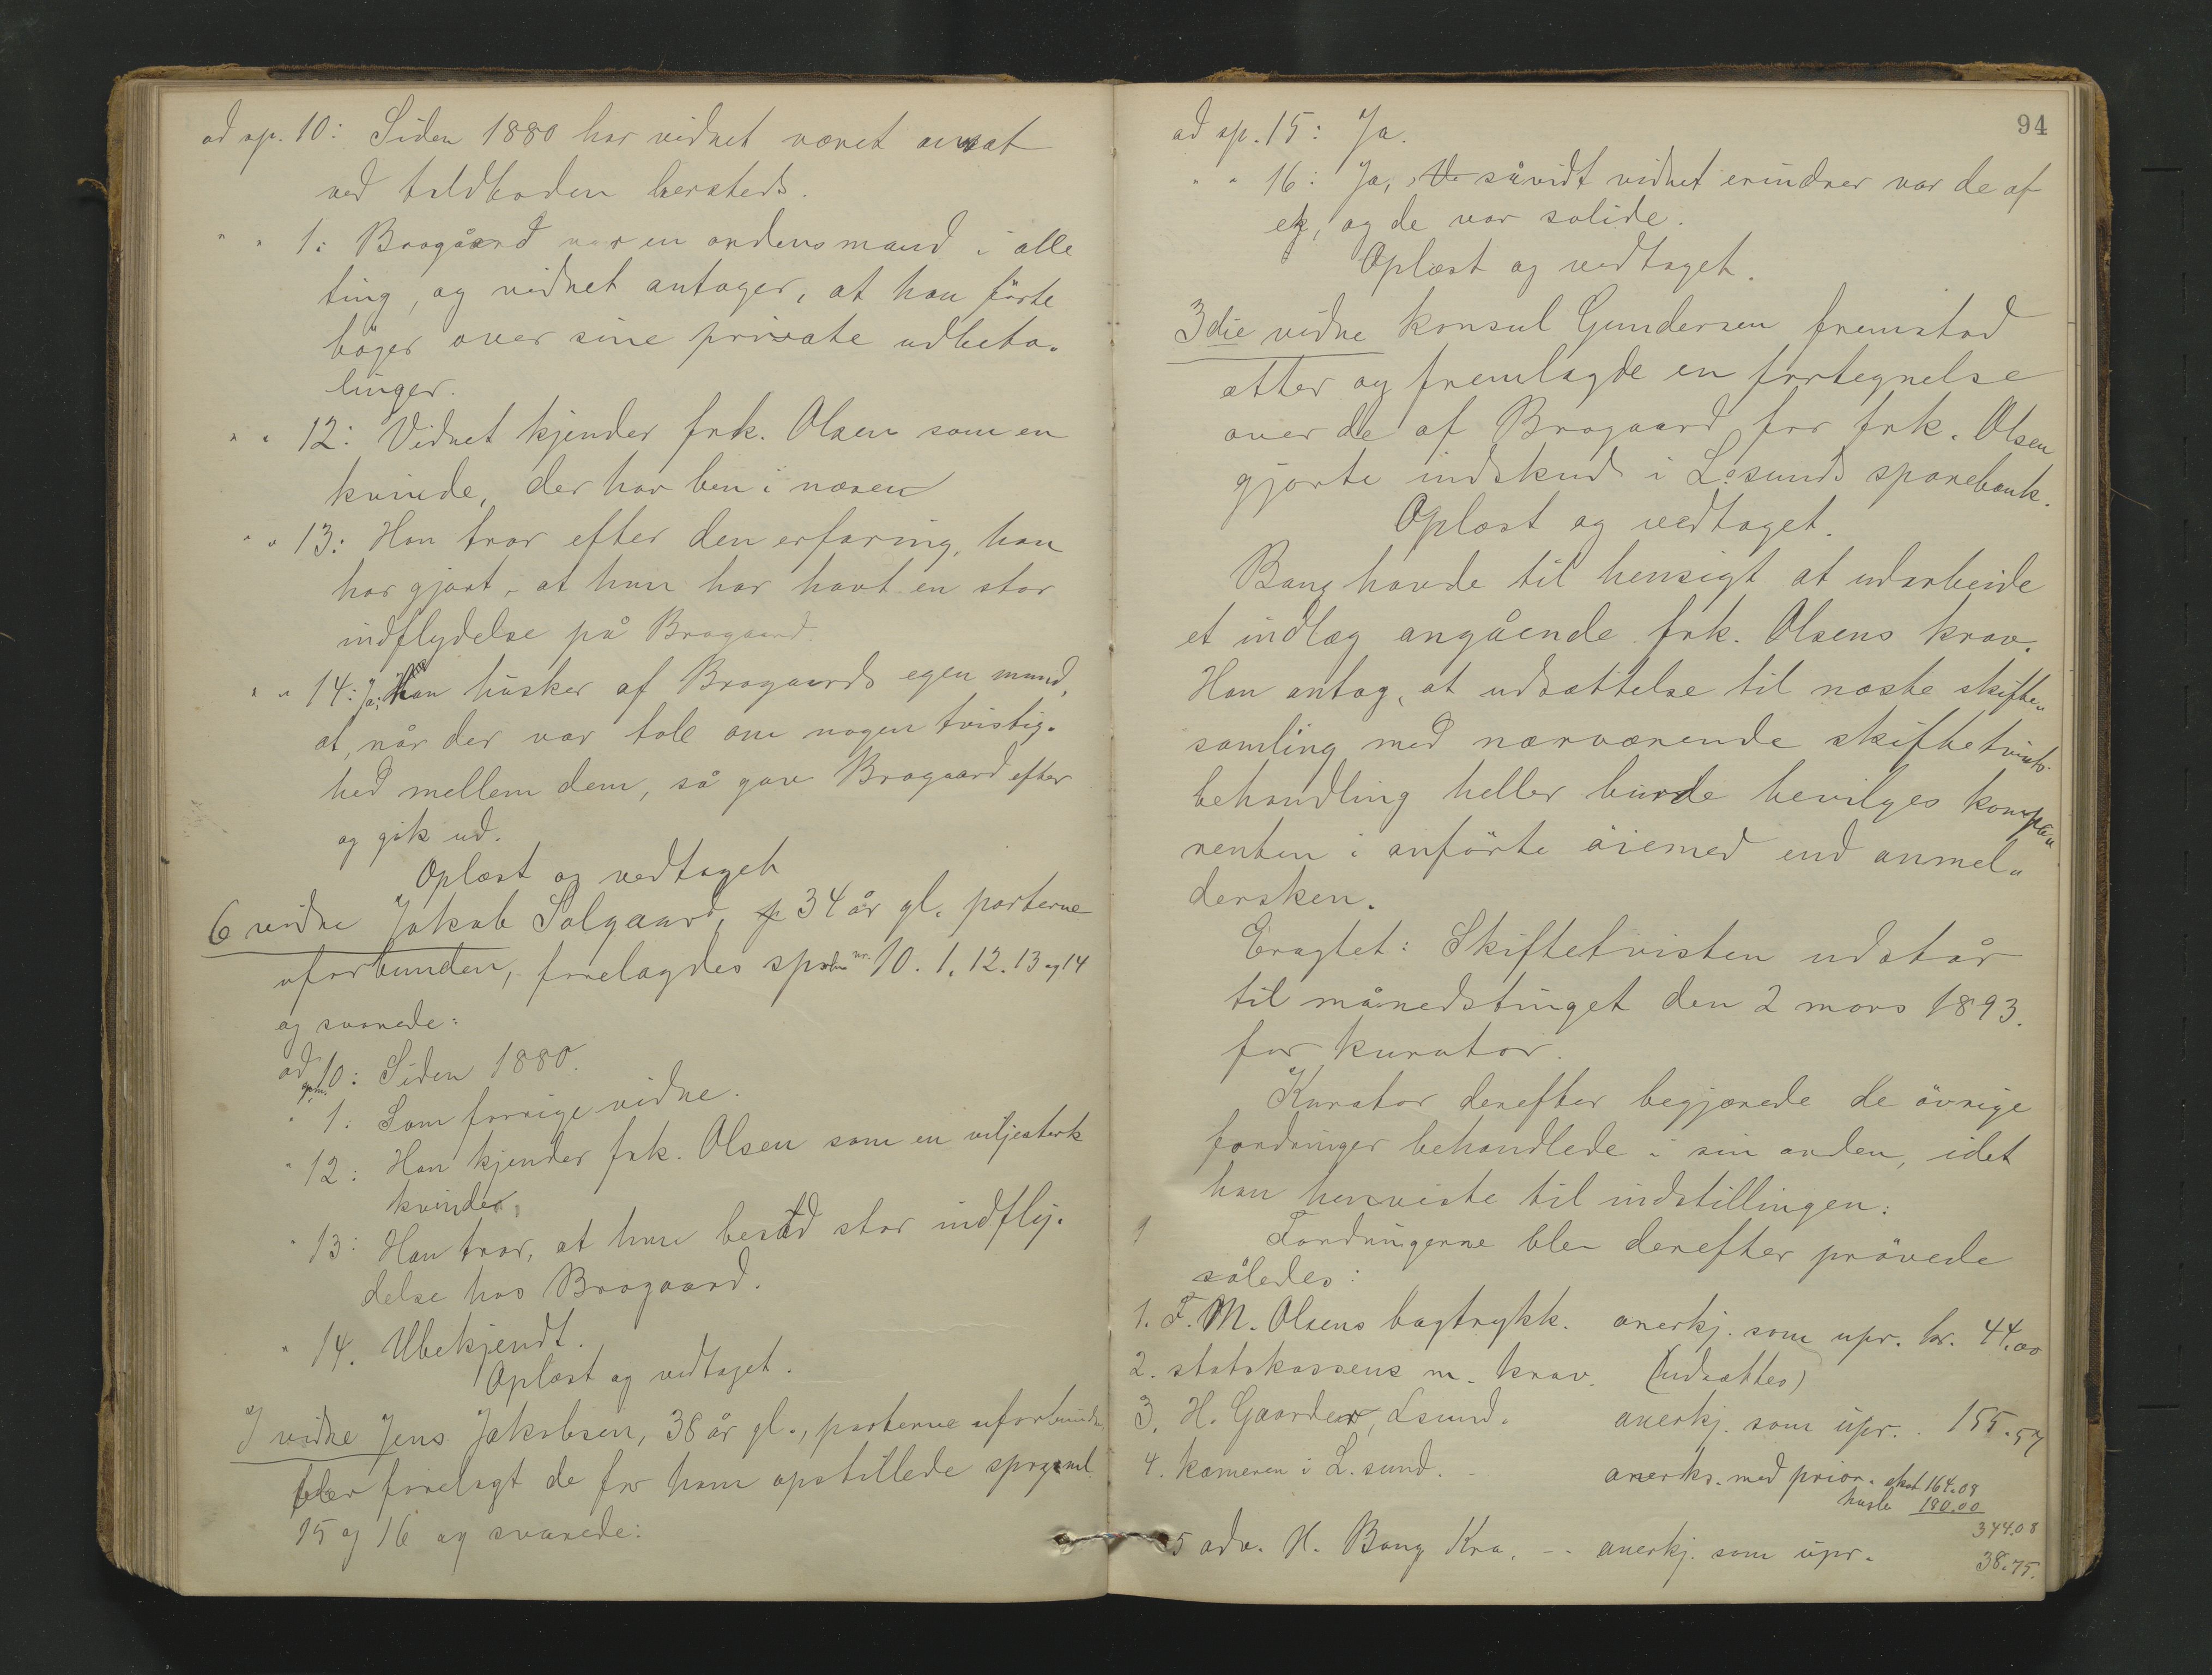 ad sp. 10: Siden 1880 har vidnet været ansat
ved toldboden hersteds.
" " 1: Brogåard var en ordensmand i alle
ting, og vidnet antager, at han førte
bøger over sine private udbeta-
linger.
" " 12: Vidnet kjender frk. Olsen som en
kvinde, der har ben i næsen
" " 13: Han tror efter den erfaring, han
har gjort, at hun har havt en stor
indflydelse på Brogaard.
" " 14: Ja; han husker af Brogaards egen mund,
at, når der var tale om nogen tvistig-
hed mellem dem, så gav Brogaard efter
og gik ud.
Oplæst og vedtaget
6 vidne Jakob Solgaard, 34 år gl. parterne
uforbunden, forelagdes spm nr. 10. 1. 12. 13 og 14
og svarede:
ad spm. 10: Siden 1880.
" 1. Som forrige vidne.
" 12: Han kjender frk. Olsen som en viljesterk
kvinde.
" 13: Han tror, at hun besad stor indfly-
delse hos Brogaard.
" 14. Ubekjendt.
Oplæst og vedtaget.
7 vidne Jens Jakobsen, 38 år gl., parterne uforbunden
blev forelagt de for ham opstillede spørgsml
15 og 16 og svarede:
94
ad sp. 15: Ja.
" " 16: Ja, såvidt vidnet erindrer var de af
ek, og de var solide.
Oplæst og vedtaget.
3die vidne konsul Gundersen fremstod
atter og fremlagde en fortegnelse
over de af Brogaard for frk. Olsen
gjorte indskud i L.sunds sparebank.
Oplæst og vedtaget.
Bang havde til hensigt at udarbeide
et indlæg angående frk. Olsens krav.
Han antog, at udsættelse til næste skifte-
samling med nærværende skiftetvists
behandling heller burde bevilges kompa-
renten i anførte øiemed end anmel-
dersken.
Eragtet: Skiftetvisten udstår
til månedstinget den 2 mars 1893.
for kurator.
Kurator derefter begjærede de øvrige
fordringer behandlede i sin orden, idet
han henviste til indstillingen.
Fordringerne blev derefter prøvede
således:
1. F. M. Olsens bogtrykk. anerkj. som upr. kr. 44.00
2. statskassens m. krav. (udsættes)
3. H. Gaarder, Lsund. anerkj. som upr. 155.57
4. kæmneren i L.sund. anerkj. med prior. skat 164.08
husle 180.00
344.08
5 adv. H. Bang Kra. -- anerkj. som upr. 38.75.